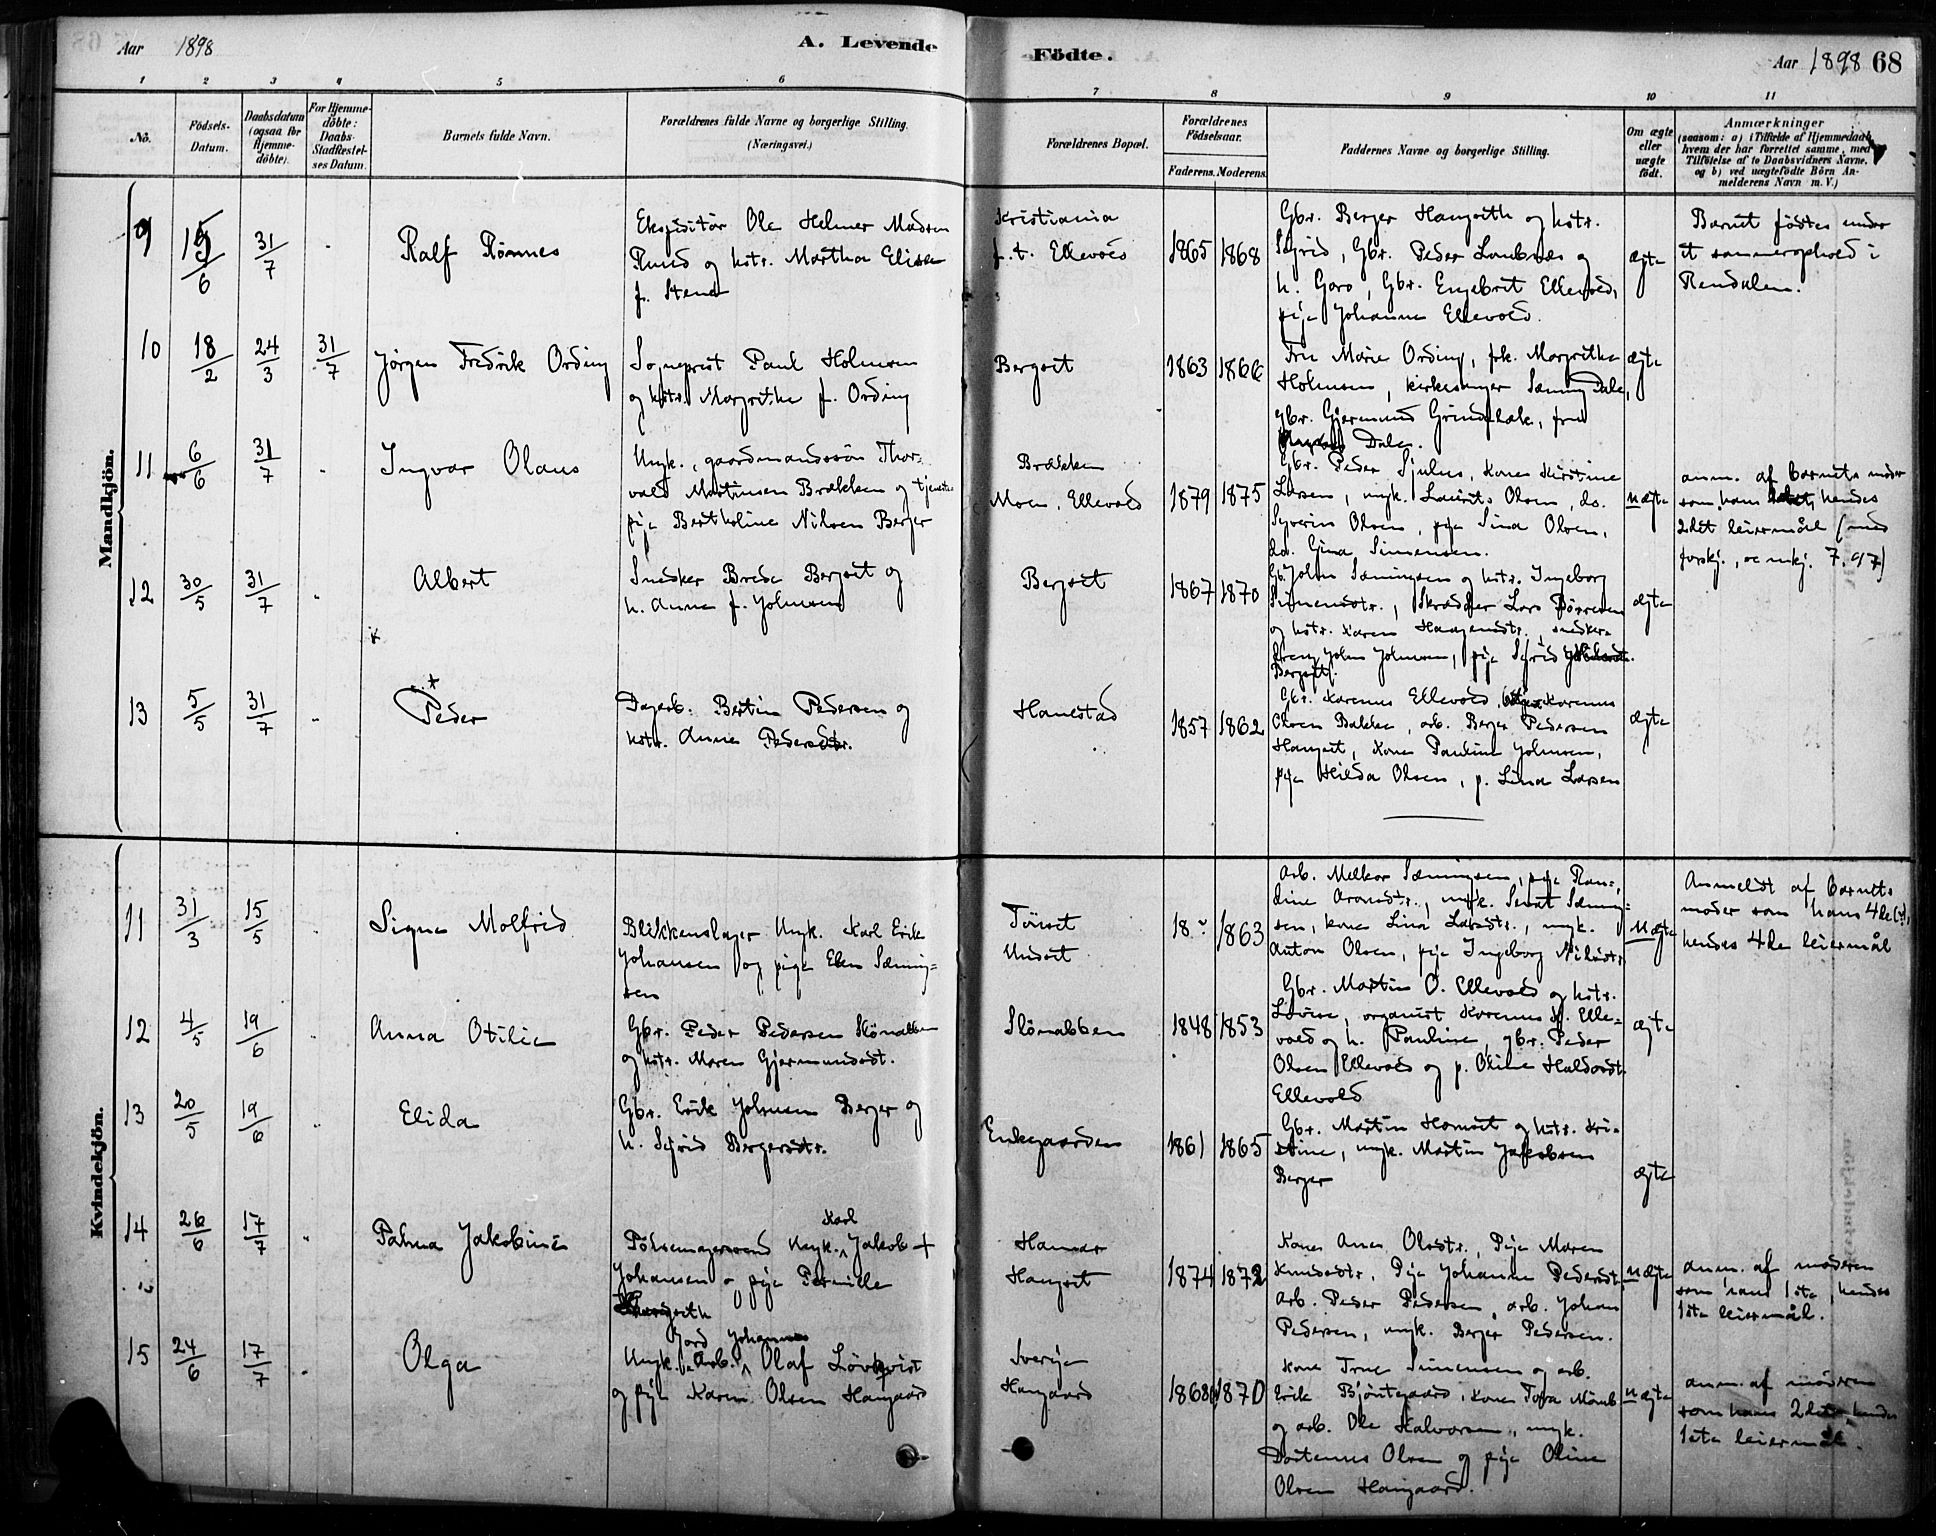 Aar 1898
A. Levende Födte.
Aar 1898 68
1 2 3 4 5 6 7 8 9 10 11
No.
Födsels-Datum.
Daabsdatum (ogsaa for Hjemmedöbte).
For Hjemmedöbte: Daabs-Stadfæstelses Datum.
Barnets fulde Navn.
Forældrenes fulde Navne og borgerlige Stilling. (Næringsvei.)
Forældrenes Bopæl.
Forældrenes Födselsaar.
Faderens. Moderens.
Faddernes Navne og borgerlige Stilling.
Om ægte eller uægte födt.
Anmærkninger
(saasom: a) i Tilfælde af Hjemmedaab, hvem der har forrettet samme, med Tilföielse af to Daabsvidners Navne, og b) ved uægtefödte Börn Anmelderens Navn m. V.)
Mandkjön.
9 15/6 31/7 Ralf Rönnes
Ekspeditör Ole Helmer Madsen
Ruud og hstr. Martha Elise
f. Stene
Kristiania
f. t. Ellevold
1865 1868
Gbr. Berger Hangseth og hstr.
Sigrid, Gbr. Peder Lombnæs og
h. Goro, Gbr. Engebrit Ellevold,
pige Johanne Ellevold.
ægte
Barnet födtes under
et sommerophold i
Rendalen.
10 18/2 24/3 31/7 Jörgen Fredrik Ording
Sogneprest Paul Holmsen
og hstr. Margrethe f. Ording
Bergset
1863 1866
Fru Marie Ording, frk. Margrethe
Holmsen, kirkesanger Sæming Dale,
gbr. Gjermund Grindflæk, fru
Dale.
ægte
11 6/6 31/7 Ingvar Olaus
Ungk., gaardmandssön Thor-
vald Martinsen Brækken og tjeneste-
pige Bertholine Nilsen Berger
Brækken
Moen, Ellevold
1879 1875
Gbr. Peder Sjulus, Kone Kirstine
Larsen, ungk. Laurits Olsen, do.
Syverin Olsen, pige Sina Olsen,
do. Gina Simensen.
uægte
anm. af barnets moder
som hans hendes
2det leiermål (med
forskj., se mkj. 7. 97)
12 30/5 31/7 Albert
Snedker Brede Bergset og
h. Anne f. Johnsen
Bergset
1867 1870
Gb. John Sæmingsen og hstr. Ingeborg
Simensdtr., Skrædder Lars Börresen
og hstr. Karen Haagensdtr., snedker-
dreng John Johnsen, pige Sigrid
Bergset.
ægte
13 5/5 31/7 Peder
Dagarb. Bertin Pedersen og
hstr. Anne Pedersdtr.
Hanestad
1857 1862
Gbr. Karenus Ellevold, Karenus
Olsen Bakke, arb. Berger Pedersen
Hangset, Kone Pauline Johnsen,
pige Hilda Olsen, p. Lina Larsen
ægte
Kvindekjön.
11 31/3 15/5 Signe Molfrid
Blikkenslager Ungk. Karl Erik
Johansen og pige Elen Sæming-
sen
Tönset
Undset
18 1863
Arb. Melkor Sæmingsen, pige Ran-
dine Aronsdtr., ungk. Senat Sæming-
sen, kone Lina Larsdtr., ungk.
Anton Olsen, pige Ingeborg Nilsdtr.
uægte
Anmeldt af barnets
moder som hans 4de(?),
hendes 4de leiermål
12 4/5 19/6 Anna Otilie
Gbr. Peder Pedersen Slönabben
og hstr. Maren Gjermundsdt.
Slönabben
1848 1853
Gbr. Martin O. Ellevold og hstr.
Lovise, organist Karenus P. Elle-
vold og h. Pauline, gbr. Peder
Olsen Ellevold og p. Oline Haldordt.
Ellevold
ægte
13 20/5 19/6 Elida
Gbr. Erik Johnsen Berger og
h. Sigrid Bergersdtr.
Enkegaarden
1861 1865
Gbr. Martin Homset og hstr. Kri-
stine, ungk. Martin Jakobsen
Berger
ægte
14 26/6 17/7 Palma Jakobine
Karl
Pölsemagersvend Ungk. Jakob
Johansen og pige Pernille
Hangseth
Hamar
Hangset
1874 1872
Kone Anne Olsdtr., Pige Maren
Knudsdtr., Pige Johanne Pedersdt.
Arb. Peder Pedersen, arb. Johan
Pedersen, ungk. Berger Pedersen.
uægte
anm. af moderen
som hans 1ste, hendes
1ste leiermål.
15 24/6 17/7 Olga
Jord Johannes
Ungk. Arb. Olaf Lövkvist
og pige Karen Olsen Haugaard
Sverige
Haugaard
1868 1870
Kone Trine Simensen og arb.
Erik Bjöntegaard, Kone Tora Momb
og arb. Ole Halvorsen, ungk.
Olsen og pige Oline
Olsen Haugaard.
uægte
anm. af moderen
som hans 2det, hendes
1ste leiermål.